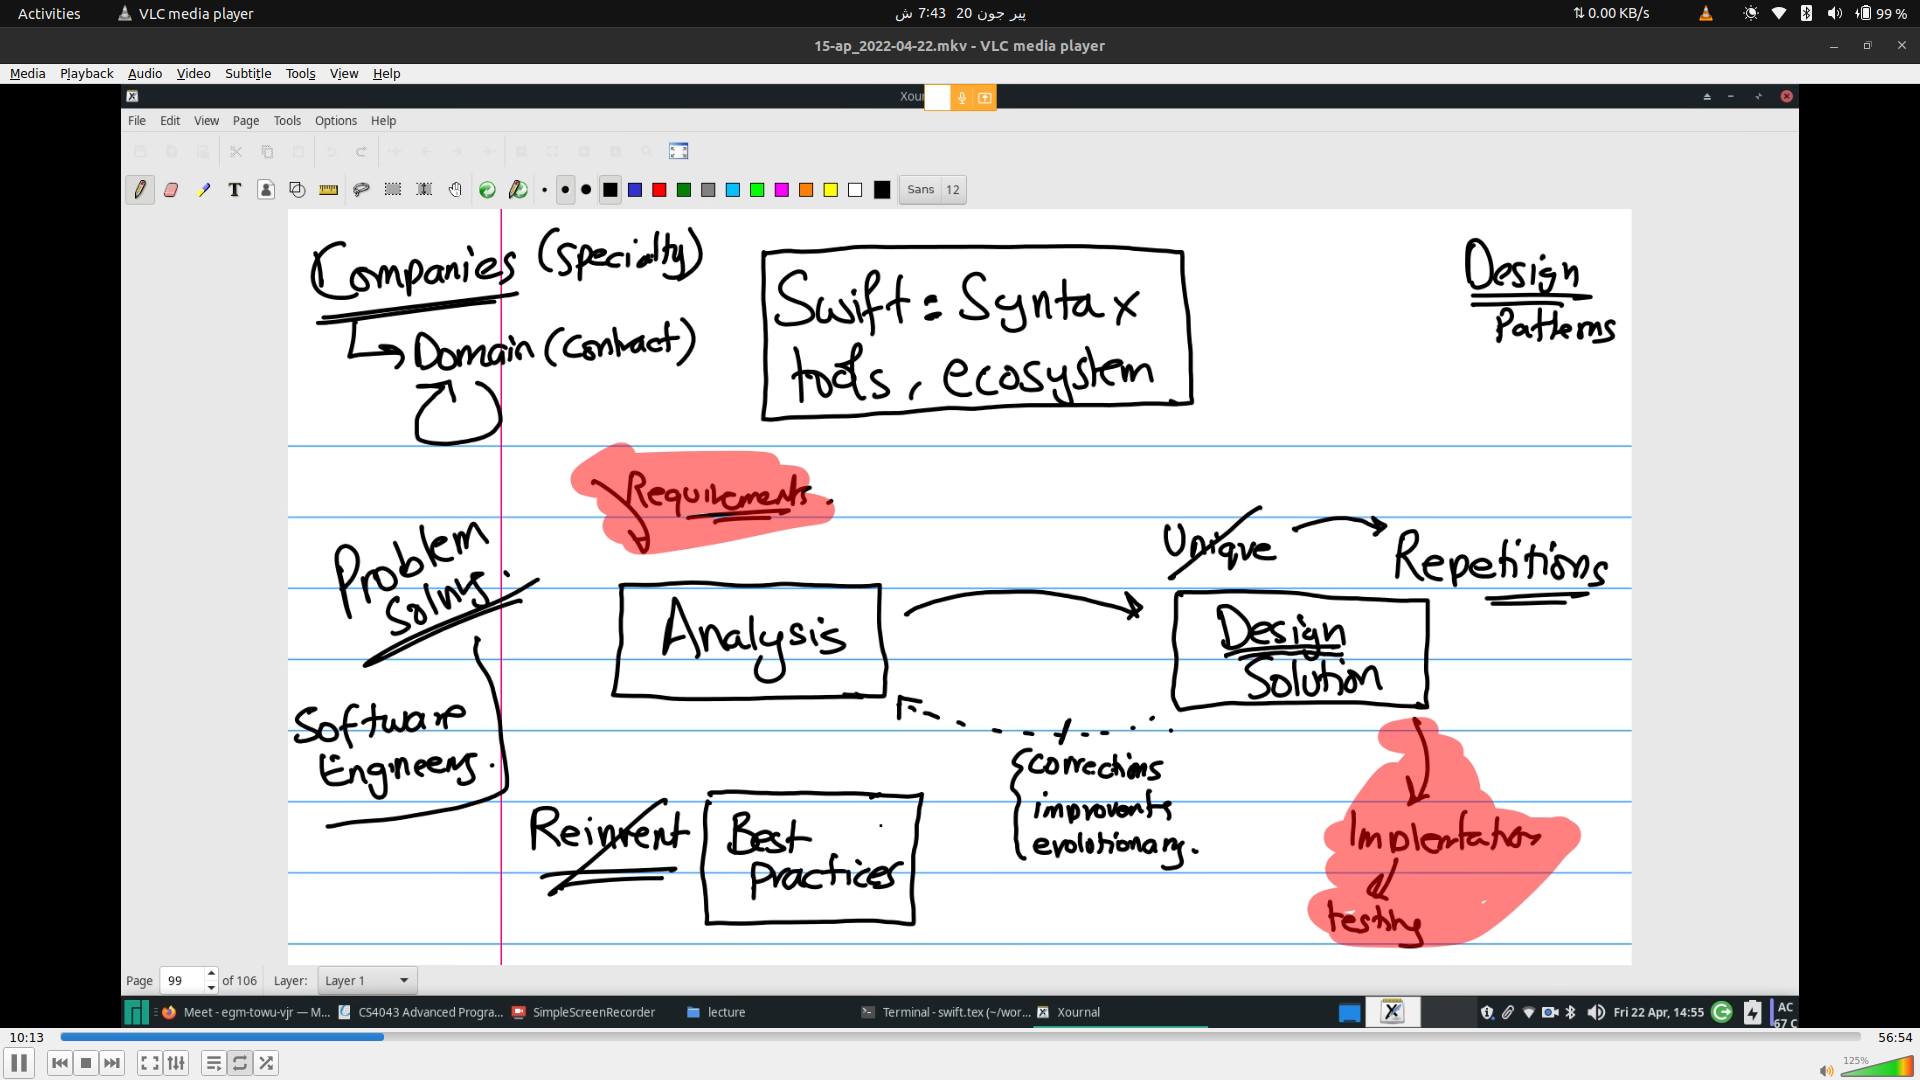 Activities
VLC media player
پیر جون 20  7:43 ش
0.00 KB/s
99 %
15-ap_2022-04-22.mkv - VLC media player
Media Playback Audio Video Subtitle Tools View Help
Xour
File Edit View Page Tools Options Help
Sans 12
Companies (specialty)
Domain (contract)
Swift : Syntax
tools, ecosystem
Design
Patterns
Requirements.
Problem
Solving.
Unique
Repetitions
Analysis
Design
Solution
Software
Engineers.
corrections
improvents
evolutionary.
Reinvent
Best
practices
Implentation
testing
Page 99 of 106 Layer: Layer 1
Meet - egm-towu-vjr — M...
CS4043 Advanced Progra...
SimpleScreenRecorder
lecture
Terminal - swift.tex (~/wor...
Xournal
Fri 22 Apr, 14:55
AC
67 C
10:13
56:54
125%